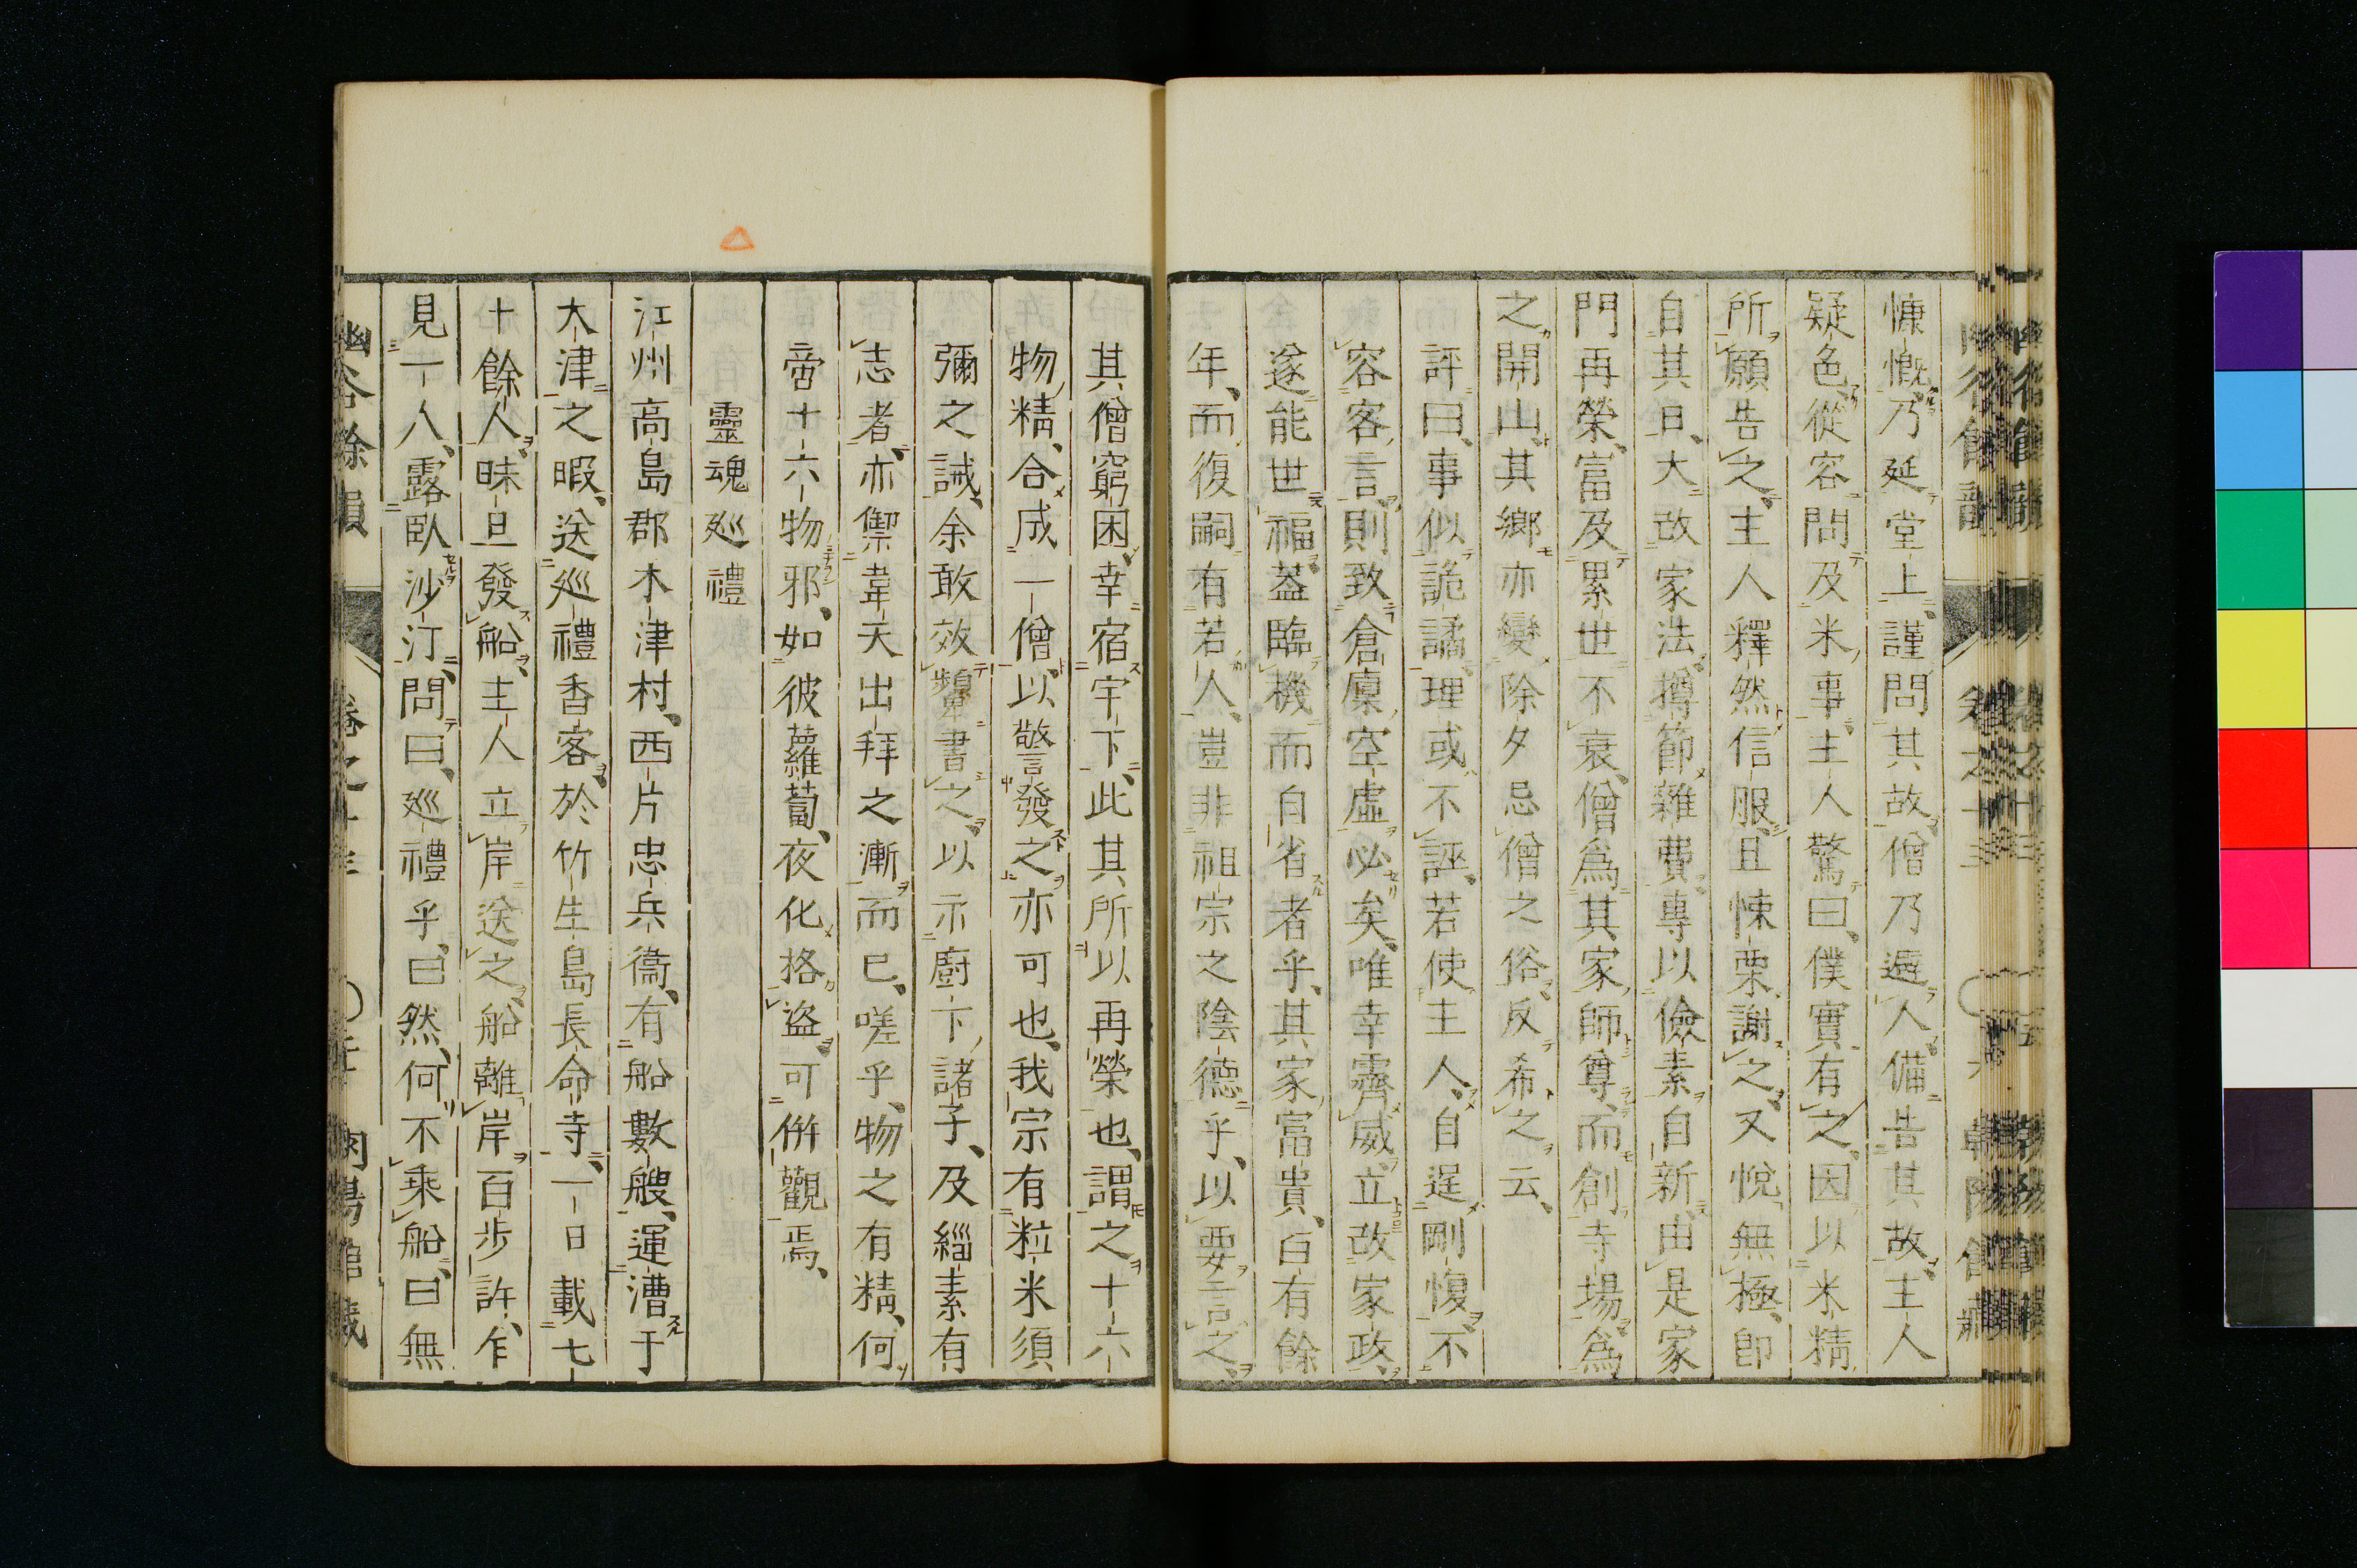 慷慨、乃延堂上、謹問其故、僧乃遜人、備告其故、主人
疑色、從容問及米事、主人驚曰、僕實有之、因以米精
所願告之、主人釋然信服、且悚栗謝之、又悅無極、即
自其日、大改家法、撙節雜費、專以儉素自新、由是家
門再榮、富及累世不衰、僧爲其家師尊、而創寺場爲
之開山、其鄉亦變除夕忌僧之俗、反希之云、
評曰、事似詭譎、理或不誣、若使主人、自逞剛愎、不
容客言、則致倉廩空虛必矣、唯幸霽威、立改家政、
遂能世福、葢臨機而自省者乎、其家富貴、自有餘
年、而復嗣有若人、豈非祖宗之陰德乎、以要言之、
其僧窮困、幸宿宇下、此其所以再榮也、謂之十六
物精、合成一僧、以警發之亦可也、我宗有粒米須
彌之誡、余敢效顰書之、以示廚下諸子、及緇素有
志者、亦禦韋天出拜之漸而已、嗟乎、物之有精、何
啻十六物邪、如彼蘿蔔、夜化挌盜、可併觀焉、
靈魂廵禮
江州高島郡木津村、西片忠兵衞、有船數艘、運漕于
大津之暇、送廵禮香客、於竹生島長命寺、一日載七
十餘人、昧旦發船、主人立岸送之、船離岸百步許、乍
見一人、露臥沙汀、問曰、廵禮乎、曰然、何不乘船、曰無